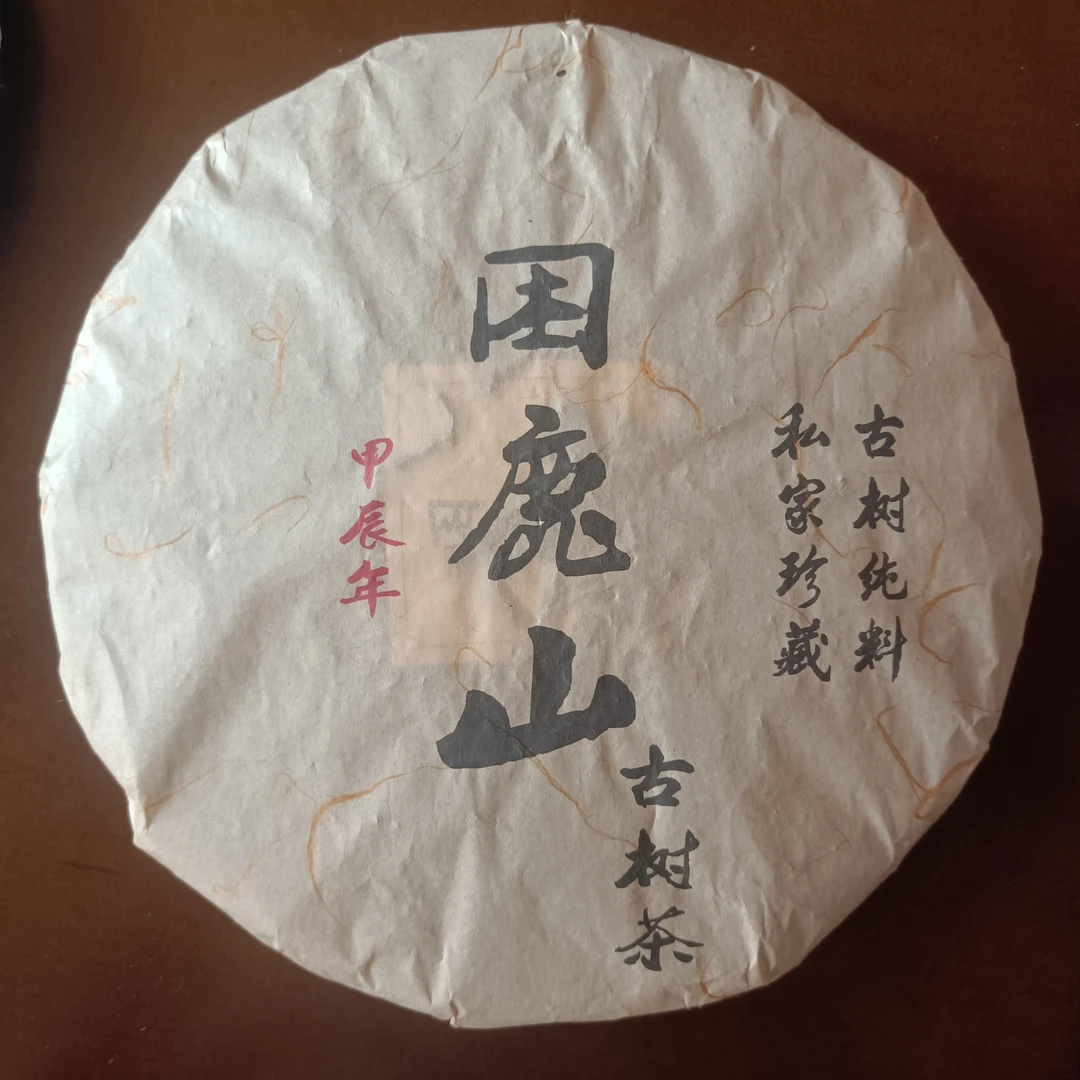 古树纯料
私家珍藏
困鹿山
古树茶
甲辰年